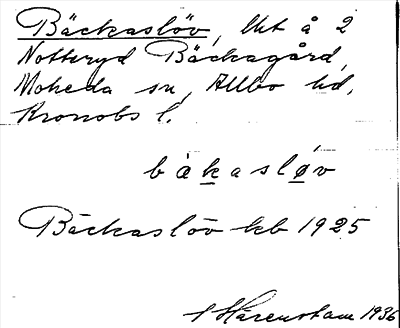 Bäckaslöv, lht å 2
Notteryd Bäckagård,
Moheda sn, Allbo hd,
Kronobs l.
bàkasløv
Bäckaslöv kb 1925
Härenstam 1936